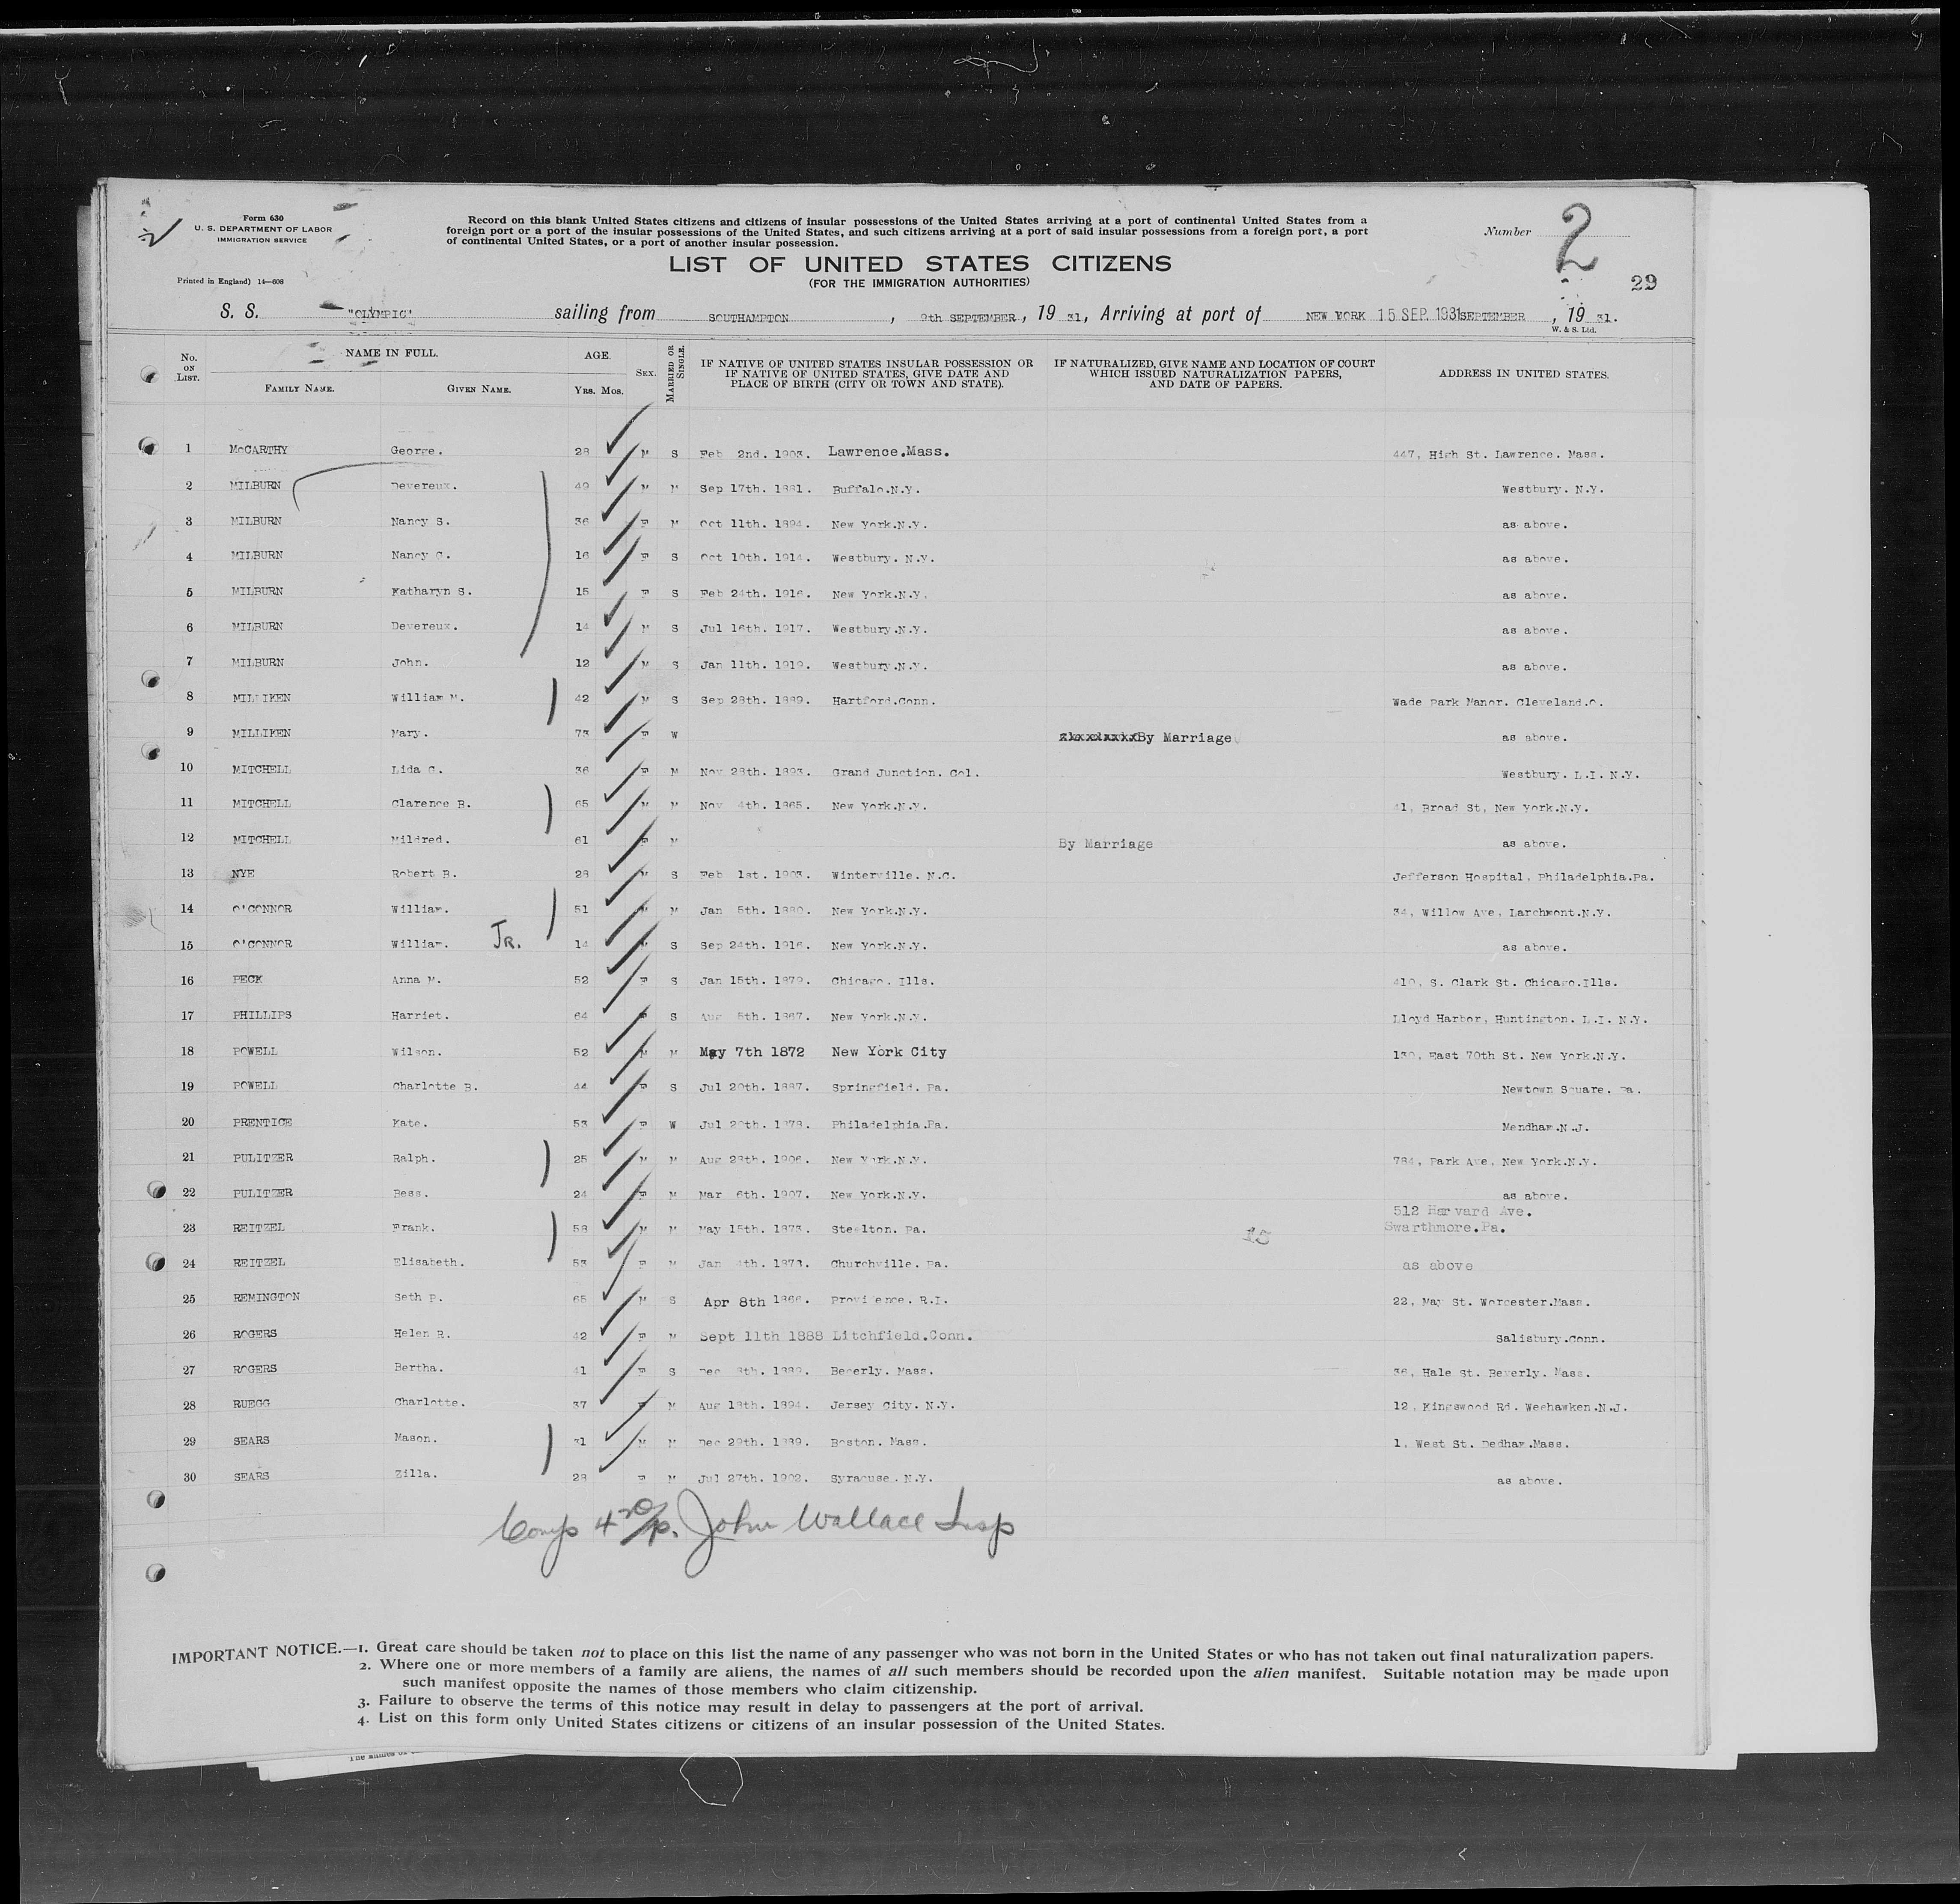 Form 630
U. S. DEPARTMENT OF LABOR
IMMIGRATION SERVICE
Printed in England) 14—608
Record on this blank United States citizens and citizens of insular possessions of the United States arriving at a port of continental United States from a
foreign port or a port of the insular possessions of the United States, and such citizens arriving at a port of said insular possessions from a foreign port, a port
of continental United States, or a port of another insular possession.
Number 2
29
LIST OF UNITED STATES CITIZENS
(FOR THE IMMIGRATION AUTHORITIES)
S. S. "OLYMPIC" sailing from SOUTHAMPTON, 9th SEPTEMBER, 19 31, Arriving at port of NEW YORK 15 SEP. 1931 SEPTEMBER, 19 31.
W. & S. Ltd.
No. ON LIST. NAME IN FULL. FAMILY NAME. GIVEN NAME. AGE. YRS. MOS. SEX. MARRIED OR SINGLE. IF NATIVE OF UNITED STATES INSULAR POSSESSION OR IF NATIVE OF UNITED STATES, GIVE DATE AND PLACE OF BIRTH (CITY OR TOWN AND STATE). IF NATURALIZED, GIVE NAME AND LOCATION OF COURT WHICH ISSUED NATURALIZATION PAPERS, AND DATE OF PAPERS. ADDRESS IN UNITED STATES.
1 McCARTHY George. 28 M S Feb 2nd. 1903. Lawrence.Mass. 447, High St. Lawrence. Mass.
2 MILBURN Devereux. 49 M M Sep 17th. 1881. Buffalo.N.Y. Westbury. N.Y.
3 MILBURN Nancy S. 36 F M Oct 11th. 1894. New York.N.Y. as above.
4 MILBURN Nancy C. 16 F S Oct 10th. 1914. Westbury. N.Y. as above.
5 MILBURN Katharyn S. 15 F S Feb 24th. 1916. New York.N.Y. as above.
6 MILBURN Devereux. 14 M S Jul 16th. 1917. Westbury.N.Y. as above.
7 MILBURN John. 12 M S Jan 11th. 1919. Westbury.N.Y. as above.
8 MILLIKEN William M. 42 M S Sep 28th. 1889. Hartford.Conn. Wade Park Manor. Cleveland.O.
9 MILLIKEN Mary. 73 F W By Marriage as above.
10 MITCHELL Lida G. 36 F M Nov 28th. 1893. Grand Junction. Col. Westbury. L.I. N.Y.
11 MITCHELL Clarence B. 65 M M Nov 4th. 1865. New York.N.Y. 41, Broad St, New York.N.Y.
12 MITCHELL Mildred. 61 F M By Marriage as above.
13 NYE Robert B. 28 M S Feb 1st. 1903. Winterville. N.C. Jefferson Hospital, Philadelphia.Pa.
14 O'CONNOR William. 51 M M Jan 5th. 1880. New York.N.Y. 34, Willow Ave, Larchmont.N.Y.
15 O'CONNOR William. JR. 14 M S Sep 24th. 1916. New York.N.Y. as above.
16 PECK Anna M. 52 F S Jan 15th. 1879. Chicago. Ills. 410, S. Clark St. Chicago.Ills.
17 PHILLIPS Harriet. 64 F S Aug 5th. 1867. New York.N.Y. Lloyd Harbor, Huntington. L.I. N.Y.
18 POWELL Wilson. 52 M M May 7th 1872 New York City 130, East 70th St. New York.N.Y.
19 POWELL Charlotte B. 44 F S Jul 20th. 1887. Springfield. Pa. Newtown Square. Pa.
20 PRENTICE Kate. 53 F W Jul 20th. 1878. Philadelphia.Pa. Mendham.N.J.
21 PULITZER Ralph. 25 M M Aug 28th. 1906. New York.N.Y. 784, Park Ave, New York.N.Y.
22 PULITZER Bess. 24 F M Mar 6th. 1907. New York.N.Y. as above.
23 REITZEL Frank. 58 M M May 15th. 1873. Steelton. Pa. 512 Harvard Ave. Swarthmore.Pa.
24 REITZEL Elisabeth. 53 F M Jan 4th. 1878. Churchville. Pa. as above
25 REMINGTON Seth P. 65 M S Apr 8th 1866. Providence. R.I. 22, May St. Worcester.Mass.
26 ROGERS Helen R. 42 F M Sept 11th 1888 Litchfield.Conn. Salisbury.Conn.
27 ROGERS Bertha. 41 F S Dec 8th. 1889. Beverly. Mass. 36, Hale St. Beverly. Mass.
28 RUEGG Charlotte. 37 F M Aug 18th. 1894. Jersey City. N.Y. 12, Kingswood Rd. Weehawken.N.J.
29 SEARS Mason. 31 M M Dec 29th. 1889. Boston. Mass. 1, West St. Dedham.Mass.
30 SEARS Zilla. 28 F M Jul 27th. 1902. Syracuse. N.Y. as above.
Comp 4 20/p. John Wallace Insp
IMPORTANT NOTICE.—1. Great care should be taken not to place on this list the name of any passenger who was not born in the United States or who has not taken out final naturalization papers.
2. Where one or more members of a family are aliens, the names of all such members should be recorded upon the alien manifest. Suitable notation may be made upon
such manifest opposite the names of those members who claim citizenship.
3. Failure to observe the terms of this notice may result in delay to passengers at the port of arrival.
4. List on this form only United States citizens or citizens of an insular possession of the United States.